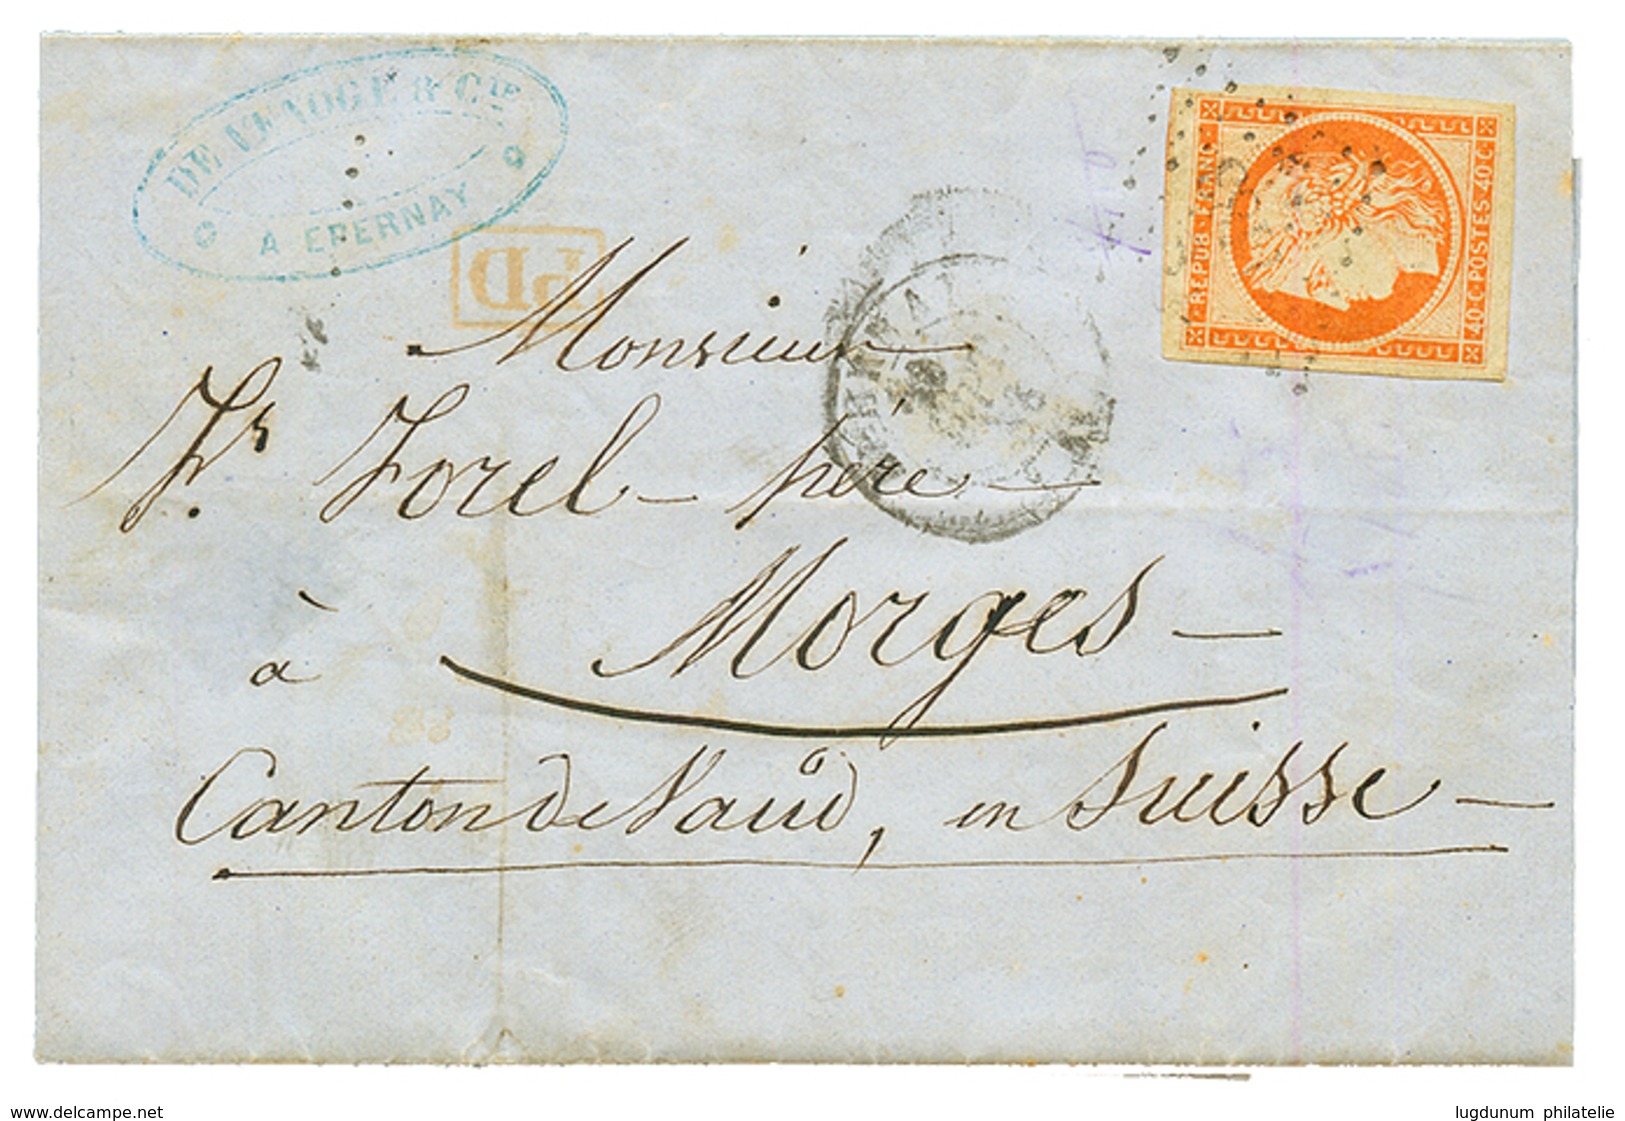 DE VENOGE & Cie
A EPERNAY
PD
REPUB FRANC
40 C POSTES 40 C
Monsieur
Fs. Forel père
à Morges
Canton de Vaud, en Suisse
www.delcampe.net
lugdunum philatelie